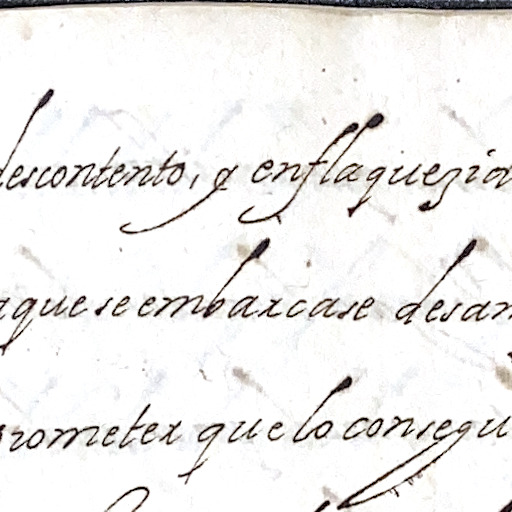 descontento, y enflaquezia
aque se embarcase desan
prometer que lo consegu